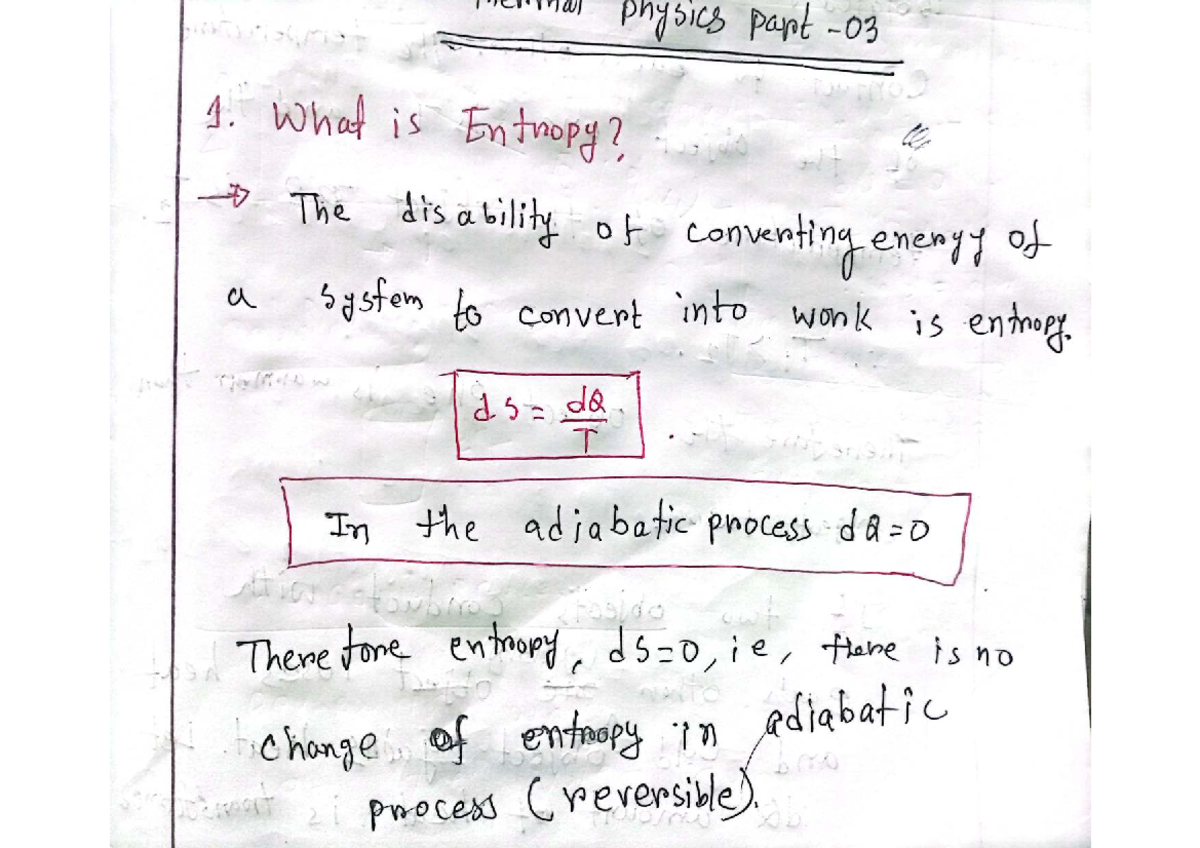 Thermal Physics Part - 03
1. What is Entropy?
→ The disability of converting energy of
a system to convert into work is entropy.
dS = dQ/T
In the adiabatic process dQ = 0
Therefore entropy, dS=0, ie, there is no
change of entropy in adiabatic
process (reversible).